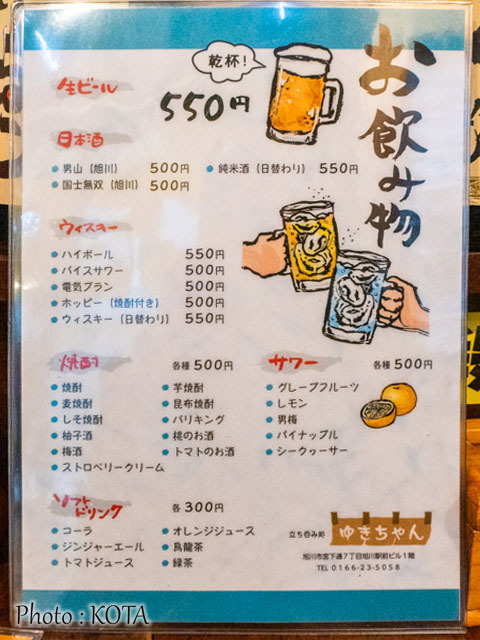 お飲み物
乾杯!
生ビール 550円
日本酒
男山(旭川) 500円 純米酒(日替わり) 550円
国士無双(旭川) 500円
ウィスキー
ハイボール 550円
バイスサワー 500円
電気ブラン 500円
ホッピー(焼酎付き) 500円
ウィスキー(日替わり) 550円
焼酎 各種 500円
焼酎 芋焼酎
麦焼酎 昆布焼酎
しそ焼酎 バリキング
柚子酒 桃のお酒
梅酒 トマトのお酒
ストロベリークリーム
サワー 各種 500円
グレープフルーツ
レモン
男梅
パイナップル
シークヮーサー
ソフトドリンク 各 300円
コーラ オレンジジュース
ジンジャーエール 烏龍茶
トマトジュース 緑茶
立ち呑み処 ゆきちゃん
旭川市宮下通7丁目旭川駅前ビル1階
TEL 0166-23-5058
Photo : KOTA